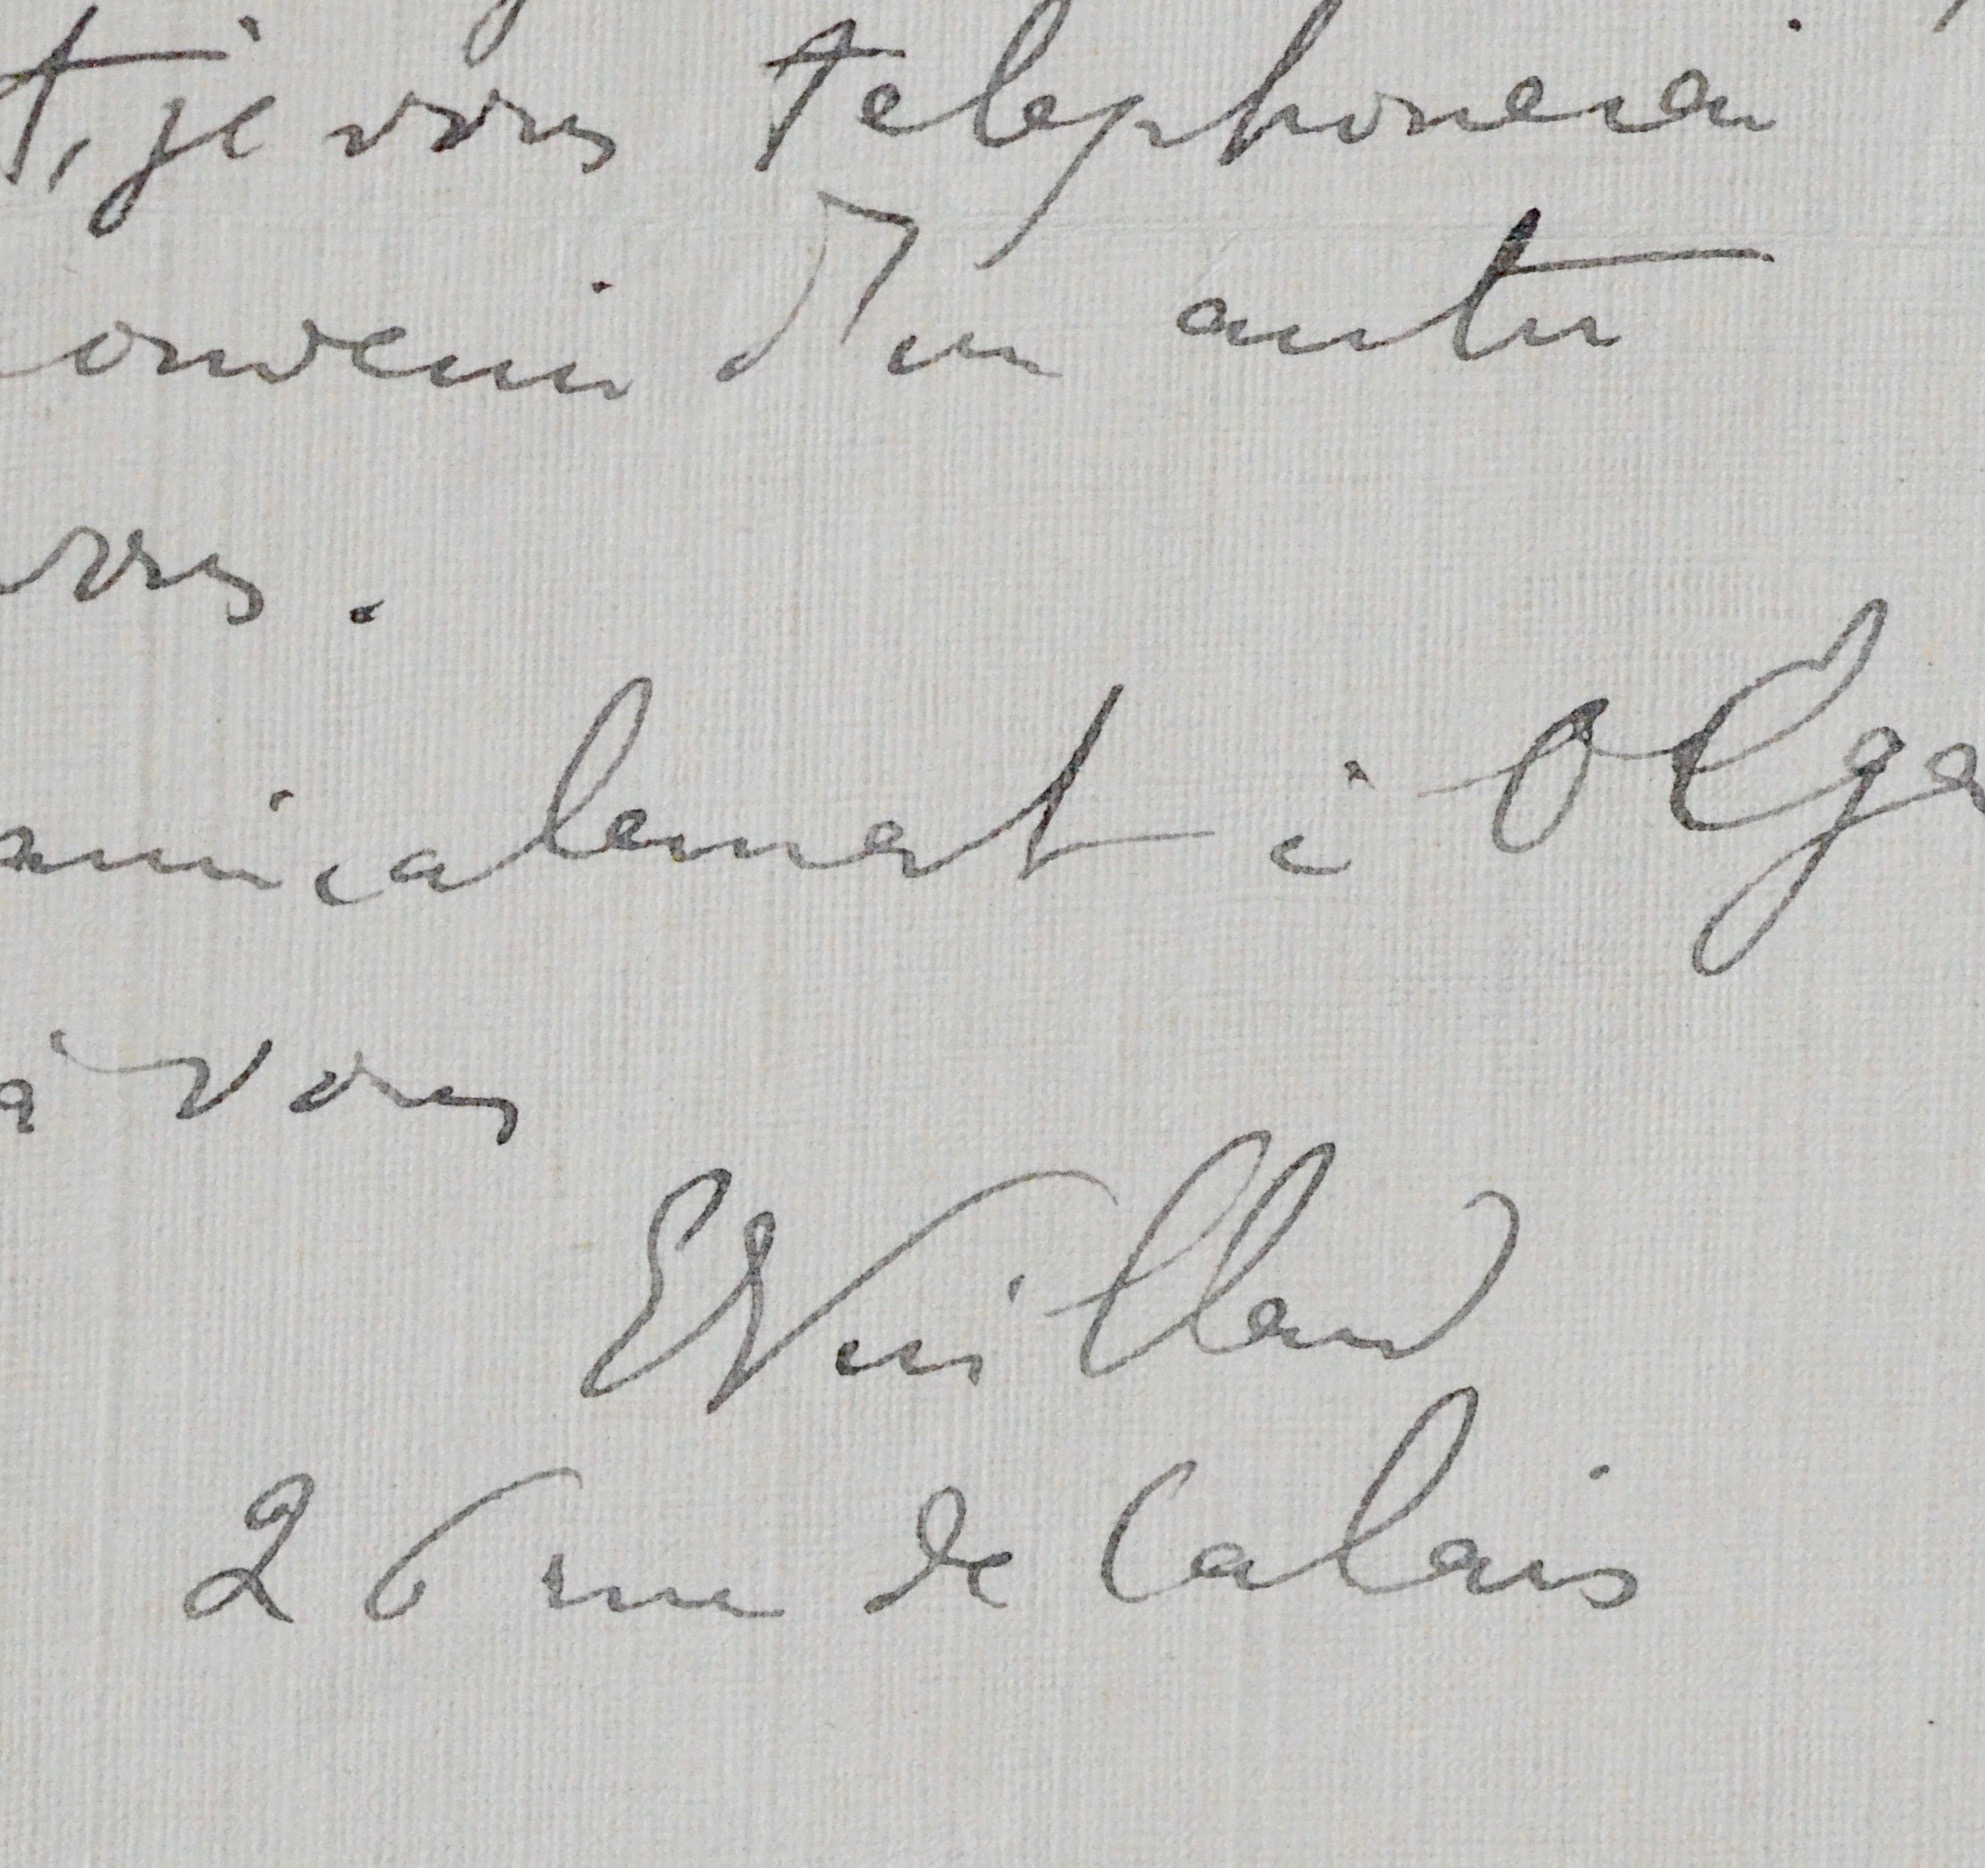 t, je vous telephonerai
convenir d'un autre
vous.
amicalement à Olga
à vous
EVuillard
26 rue de Calais